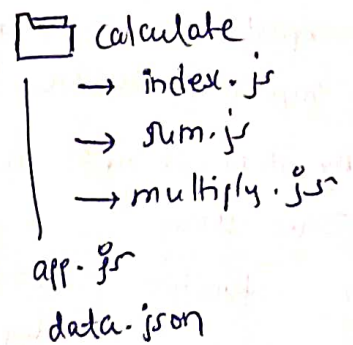 calculate
→ index.js
→ sum.js
→ multiply.js
app.js
data.json